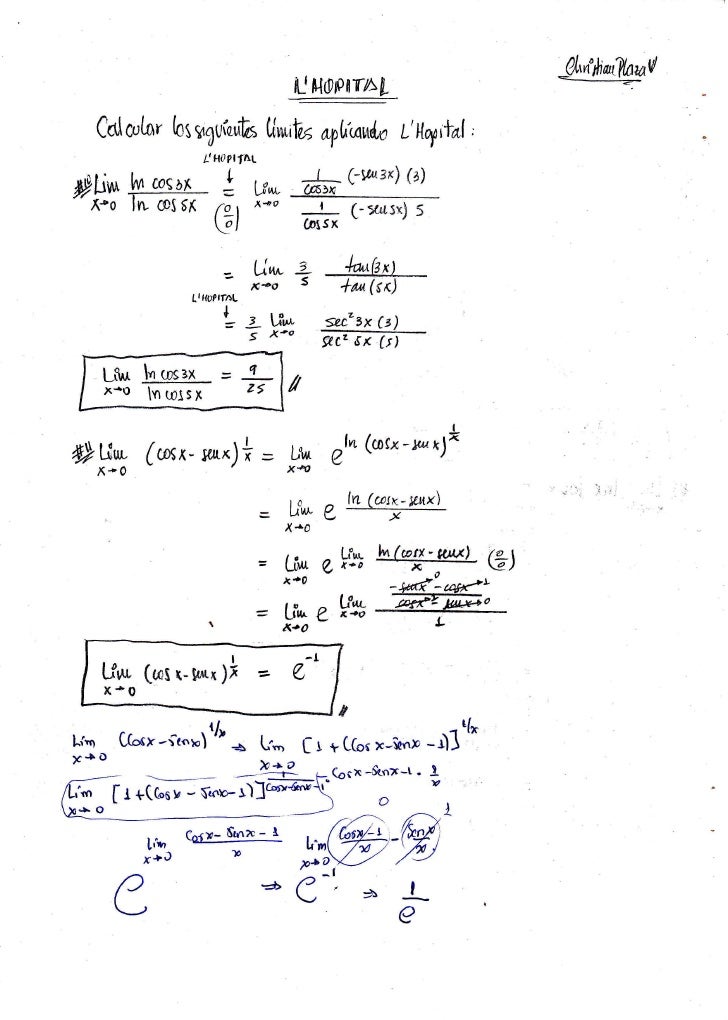 Christian Plaza V
L'HOPITAL
Calcular los siguientes límites aplicando L'Hopital:
L'HOPITAL
#10 Lim x→0 ln cos3x / ln cos5x = (0/0) Lim x→0 (1/cos3x (-sen3x) (3)) / (1/cos5x (-sen5x) 5)
= Lim x→0 3/5 tan(3x) / tan(5x)
L'HOPITAL
= 3/5 Lim x→0 sec² 3x (3) / sec² 5x (5)
Lim x→0 ln cos3x / ln cos5x = 9/25 //
#11 Lim x→0 (cosx - senx)^(1/x) = Lim x→0 e^(ln (cosx - senx)^(1/x))
= Lim x→0 e^(ln (cosx - senx) / x)
= Lim x→0 e^(Lim x→0 ln (cosx - senx) / x) (0/0)
= Lim x→0 e^(Lim x→0 ((-senx→0 - cosx→1) / (cosx→1 - senx→0)) / 1)
Lim x→0 (cosx - senx)^(1/x) = e^(-1) //
Lim x→0 (Cosx - senx)^(1/x) ⇒ Lim x→0 [1 + (Cosx - senx - 1)]^(1/x)
Lim x→0 [1 + (Cosx - senx - 1)]^(1/(Cosx - senx - 1) · Cosx - senx - 1 · 1/x)
e^(Lim x→0 (Cosx - senx - 1)/x) ⇒ e^(Lim x→0 (Cosx - 1)/x - senx/x) 0 1
⇒ e^(-1) ⇒ 1/e